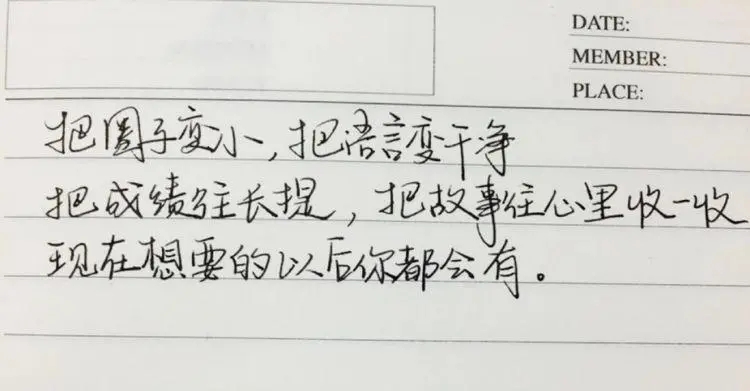 DATE:
MEMBER:
PLACE:
把圈子变小,把语言变干净
把成绩往长提,把故事往心里收一收
现在想要的以后你都会有。